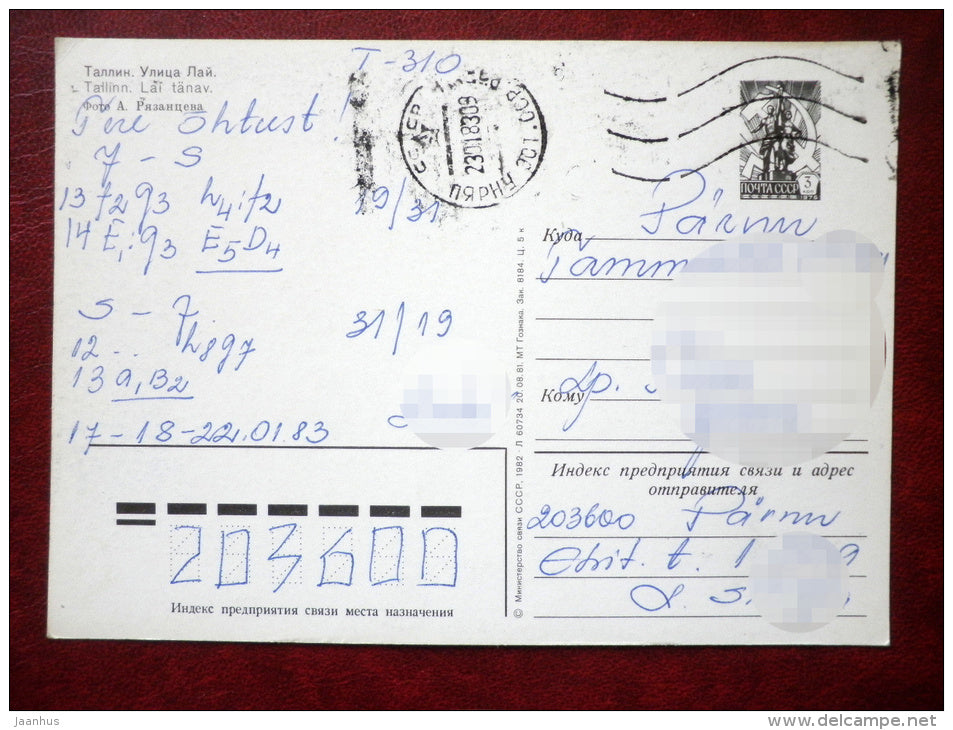 Таллин. Улица Лай.
Tallinn. Lai tänav.
Фото А. Рязанцева
T-310
Tere õhtust!
7 - S
13 f2g3 h4:f2 19/31
14 E1:g3 E5D4
S - 7
12 .. h8g7 31/19
13 a1B2
17-18-22.01.83
ПЯРНУ
230183 09
ПОЧТА СССР
3
1976
Куда Pärnu
Tamm
Кому
Индекс предприятия связи и адрес
отправителя
203600 Pärnu
Ehit. t. 1
203600
Индекс предприятия связи места назначения
© Министерство связи СССР, 1982 · Л 60734 20.08.81. МТ Гознака. Зак. 8184. Ц. 5 к
Jaanhus
www.delcampe.net